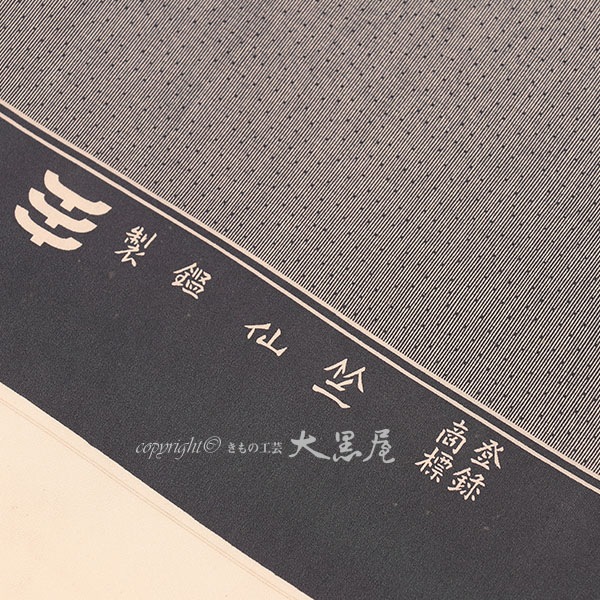 登録
商標
竺仙鑑製
copyright© きもの工芸 大黒屋